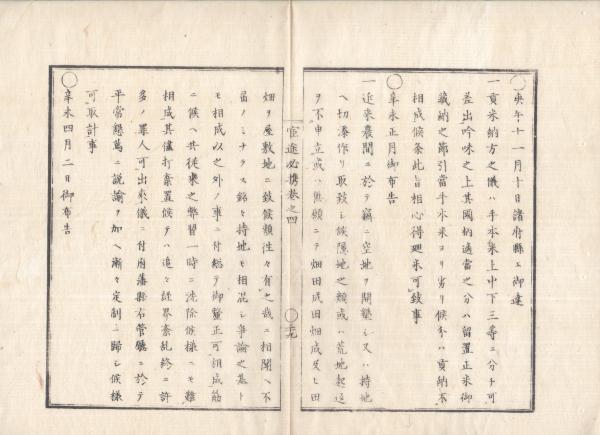 ○庚午十一月十日諸府縣ヱ御達
一貢米納方之儀ハ手本米上中下三等ニ分チ可
差出吟味之上其國柄適當之分ハ留置正米御
藏納之節引當手本米ヨリ劣リ候分ハ貢納不
相成候条此旨相心得廻米可致事
○辛未正月御布告
一近来農間ニ於テ竊ニ空地ヲ開墾シ又ハ持地
ヘ切添作リ取致シ候隠地之類或ハ荒地起返
ヲ不申立或ハ無願ニテ畑田成田畑成及ヒ田
宦途必携巻之四
畑ヲ屋敷地ニ致候類往々有之哉ニ相聞ヘ不
埒ノミナラス銘々持地モ相混シ争論之基ト
モ相成以之外ノ事ニ付総テ御釐正可相成筋
ニ候ヘ共従来之弊習一時ニ洗除候様ニモ難
相成其儘打棄置候テハ追々経界紊乱終ニ許
多ノ罪人可出来儀ニ付府藩縣右管轄ニ於テ
平常懇篤ニ説諭ヲ加ヘ漸々定制ニ歸シ候様
可取計事
○辛未四月二日御布告